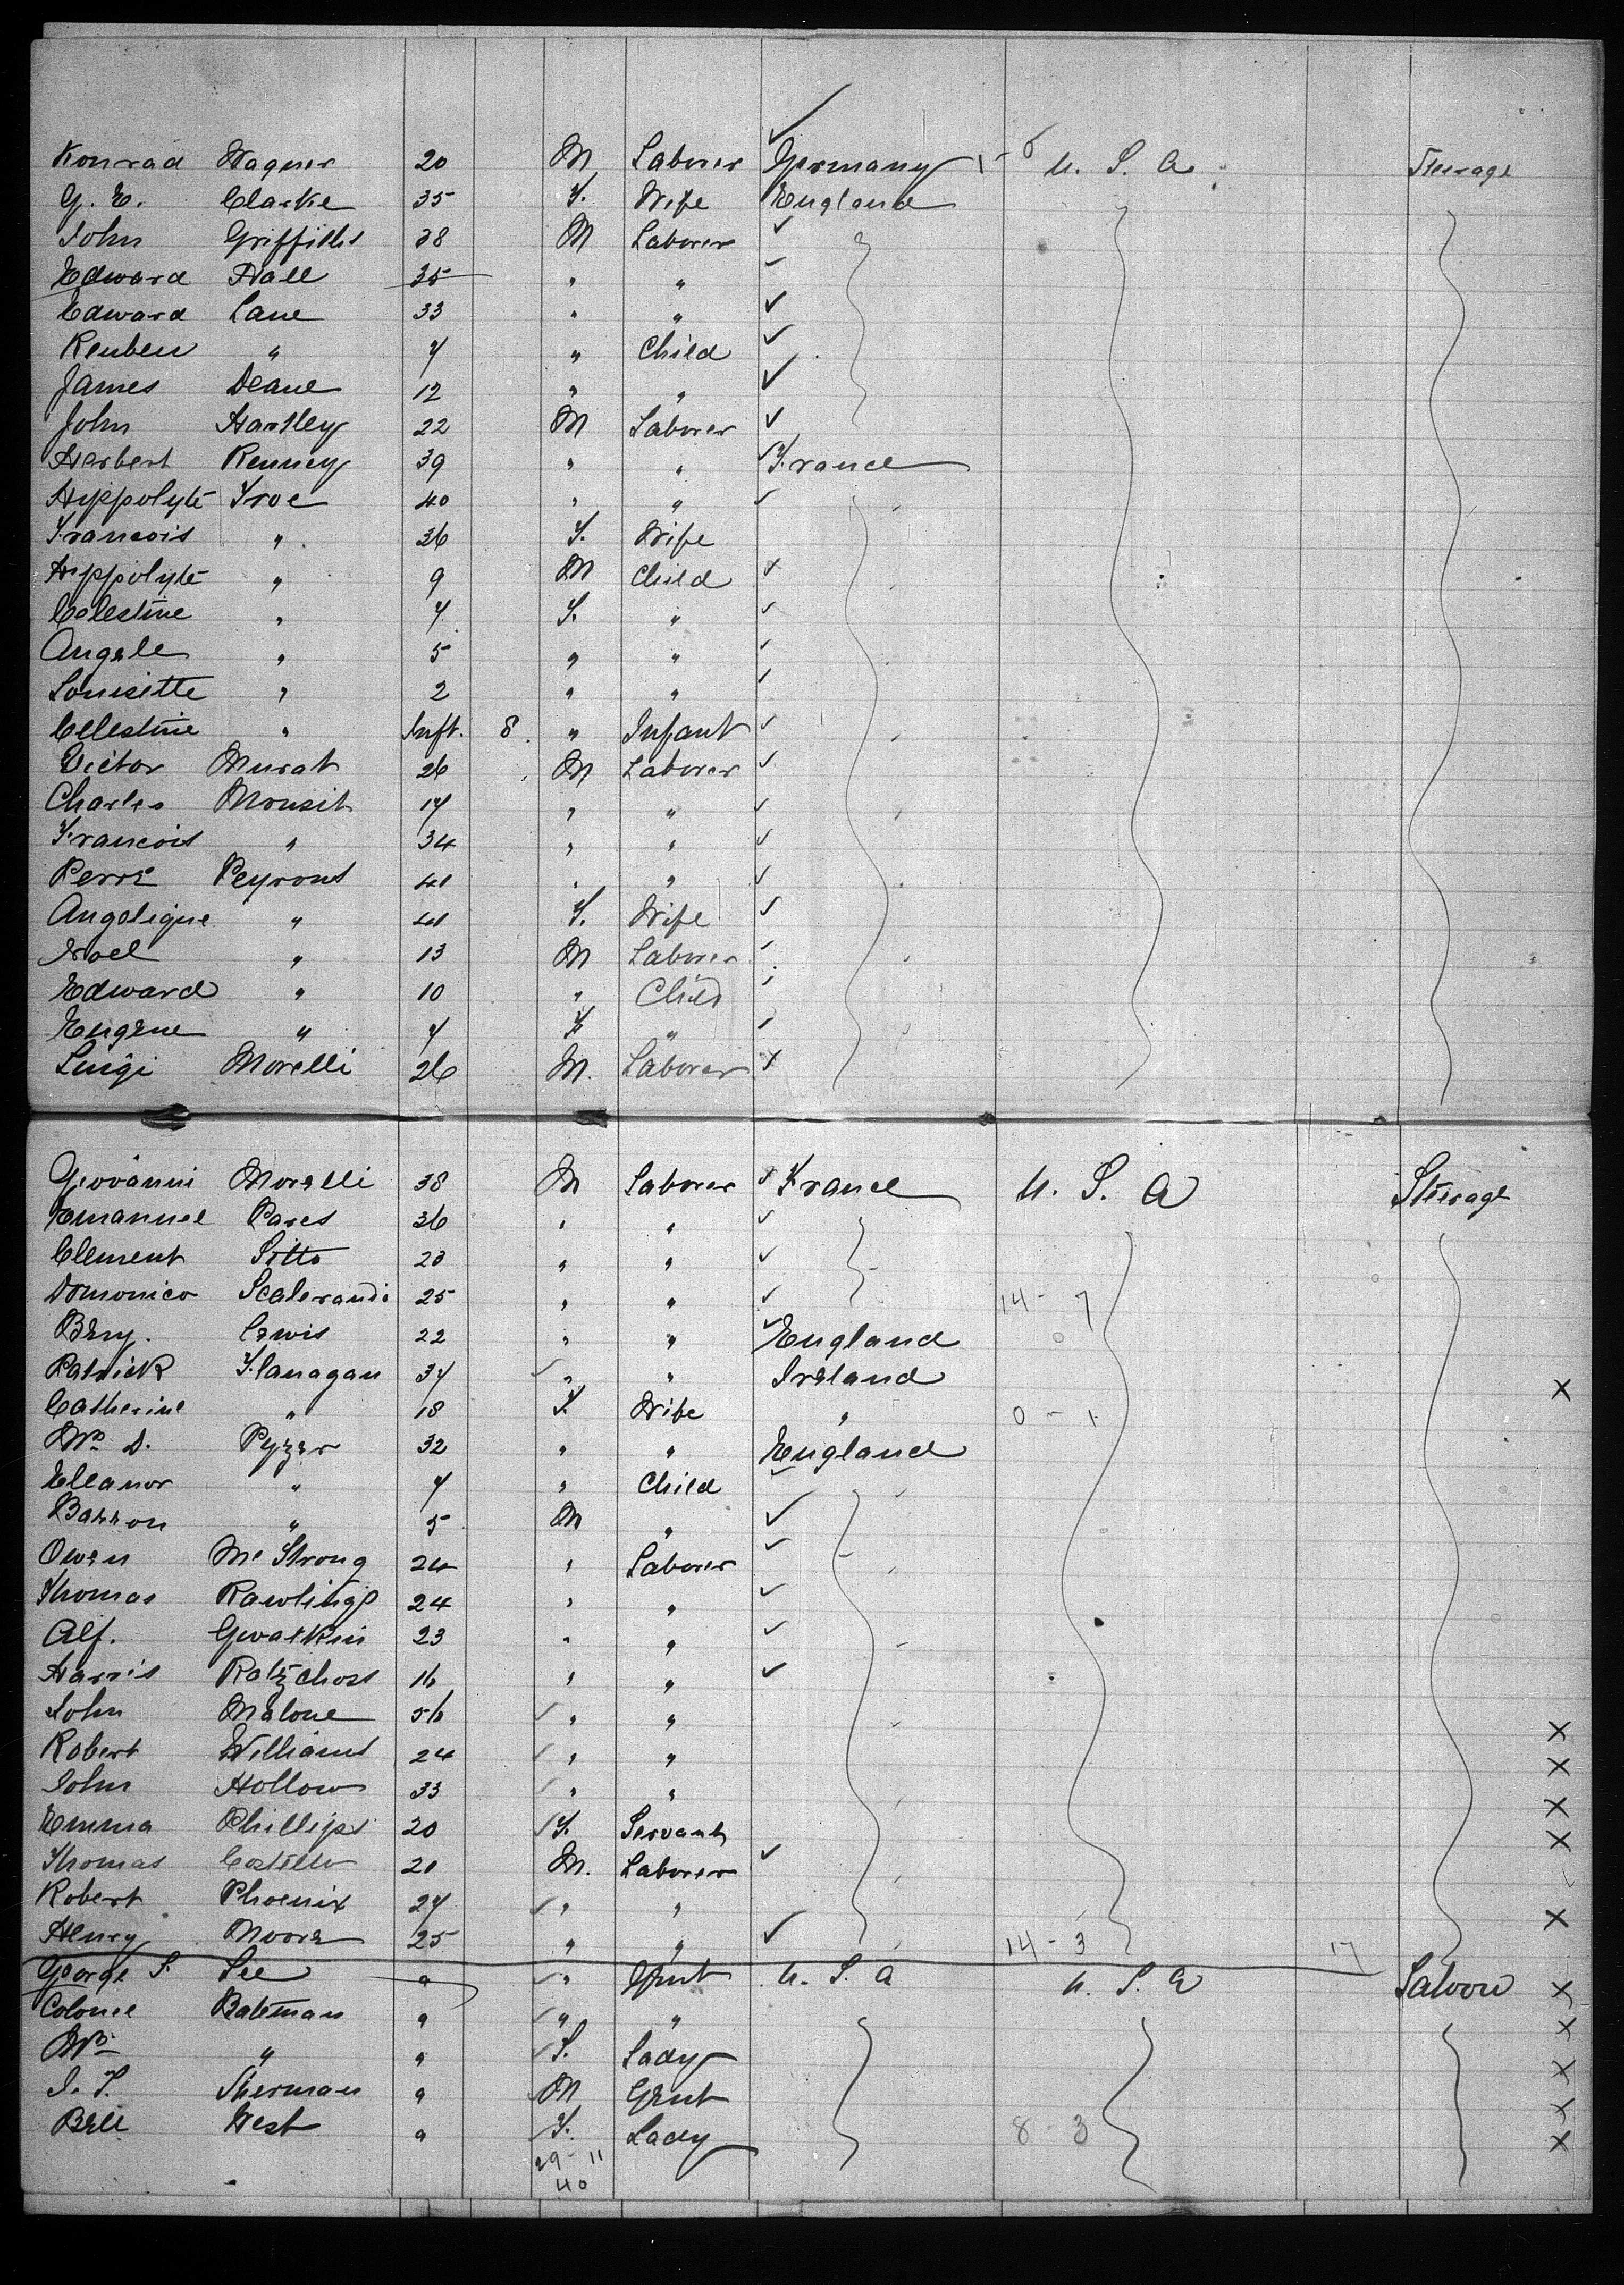 Konrad Wagner 20 M Laborer Germany 1 - 0 U. S. A. Steerage
G. E. Clarke 35 F. Wife England
John Griffiths 38 M Laborer
Edward Hall 35 " "
Edward Lane 33 " "
Reuben " 7 " Child
James Deane 12 " "
John Hartley 22 M Laborer
Herbert Kenney 39 " " France
Hippolyte Froe 40 " "
Francois " 36 F. Wife
Hippolyte " 9 M Child
Celestine " 7 F. "
Angele " 5 " "
Louisette " 2 " "
Celestine " Inft. 8 " Infant
Victor Murat 26 M Laborer
Charles Mousit 17 " "
Francois " 34 " "
Perre Peyrons 41 " "
Angelique " 41 F. Wife
Noel " 13 M Laborer
Edward " 10 " Child
Eugene " 7 F "
Luigi Morelli 26 M. Laborer
Giovanni Morelli 38 M Laborer France U. S. A Steerage
Emanuel Pares 36 " "
Clement Sitto 23 " "
Domonico Scalerandi 25 " " 14 - 7
Benj. Lewis 22 " " England 0
Patrick Flanagan 37 " " Ireland X
Catherine " 18 F. Wife " 0 - 1
Mrs D. Pyzer 32 " " England
Eleanor " 7 " Child
Barron " 5 M "
Owen Mc Strong 24 " Laborer
Thomas Rawlings 24 " "
Alf. Gwatkin 23 " "
Harris Ratzchoss 16 " "
John Malone 56 " " X
Robert Williams 24 " " X
John Hollow 33 " " X
Emma Phillips 20 F. Servant X
Thomas Costello 21 M. Laborer
Robert Phoenix 27 " " X
Henry Moore 25 " " 14 - 3 17
George S. Lee " " Gent U. S. A U. S. A Saloon X
Colonel Bateman " " " X
Mrs " " F. Lady X
I. T. Sherman " M Gent X
Bell West " F. Lady 8 - 3 X
29 - 11
40